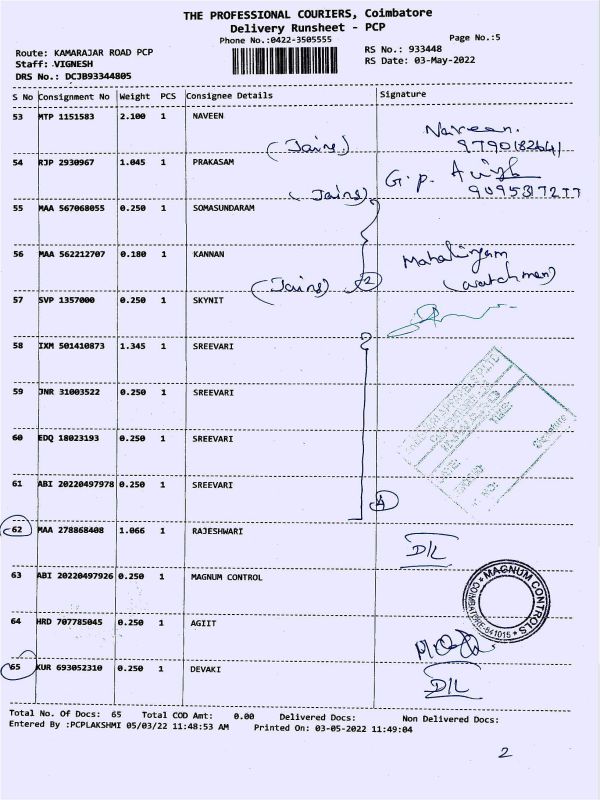 THE PROFESSIONAL COURIERS, Coimbatore
Delivery Runsheet - PCP
Phone No.:0422-3505555
Page No.:5
Route: KAMARAJAR ROAD PCP
RS No.: 933448
Staff: VIGNESH
RS Date: 03-May-2022
DRS No.: DCJB93344805
S No Consignment No Weight PCS Consignee Details Signature
53 MTP 1151583 2.100 1 NAVEEN
Naveen.
(Jains) 9790182641
54 RJP 2930967 1.045 1 PRAKASAM
G.P.
(Jains) 9095317277
55 MAA 567068055 0.250 1 SOMASUNDARAM
56 MAA 562212707 0.180 1 KANNAN
Mahalingam
(Jains) 2 (watchman)
57 SVP 1357000 0.250 1 SKYNIT
58 IXM 501410873 1.345 1 SREEVARI
59 JNR 31003522 0.250 1 SREEVARI
60 EDQ 18023193 0.250 1 SREEVARI
Signature
61 ABI 20220497978 0.250 1 SREEVARI
4
62 MAA 278868408 1.066 1 RAJESHWARI
D/L
63 ABI 20220497926 0.250 1 MAGNUM CONTROL
MAGNUM CONTROLS
COIMBATORE-641015
64 HRD 707785045 0.250 1 AGIIT
65 KUR 693052310 0.250 1 DEVAKI
D/L
Total No. Of Docs: 65 Total COD Amt: 0.00 Delivered Docs: Non Delivered Docs:
Entered By :PCPLAKSHMI 05/03/22 11:48:53 AM Printed On: 03-05-2022 11:49:04
2